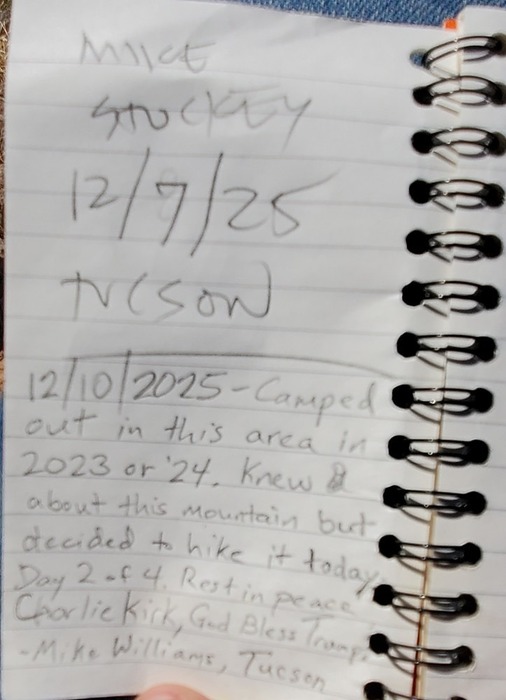 MIKE
STUCKEY
12/7/25
TUCSON
12/10/2025 - Camped
out in this area in
2023 or '24. Knew
about this mountain but
decided to hike it today.
Day 2 of 4. Rest in peace
Charlie Kirk, God Bless Trump.
- Mike Williams, Tucson